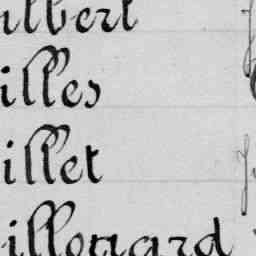 ilbert
illes
illet
illouard